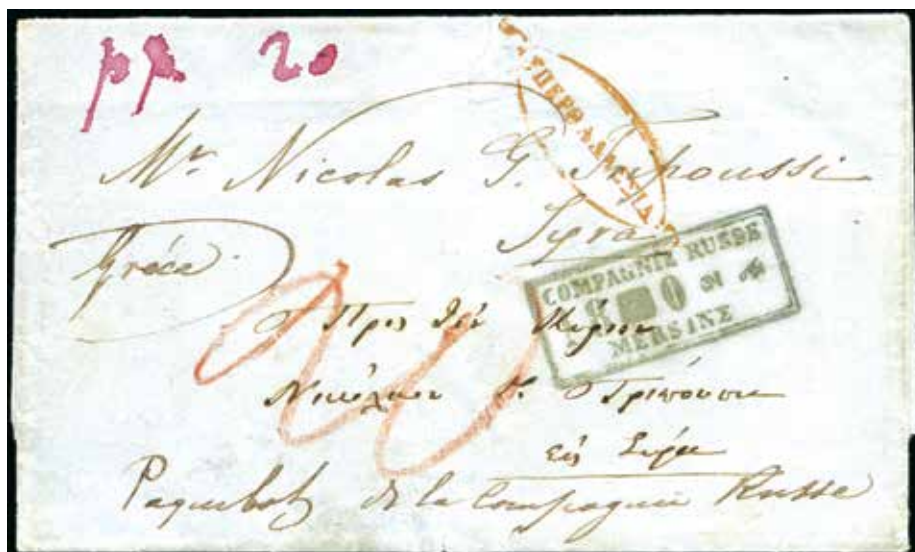 pp. 20
Mr. Nicolas G.
Syra
Gréce.
COMPAGNIE RUSSE
MERSINE
20
Πρὸς τὸν Κύριον
Νικόλαον Γ. Τριπούσση
εἰς Σύρα
Paquebot de la Compagnie Russe